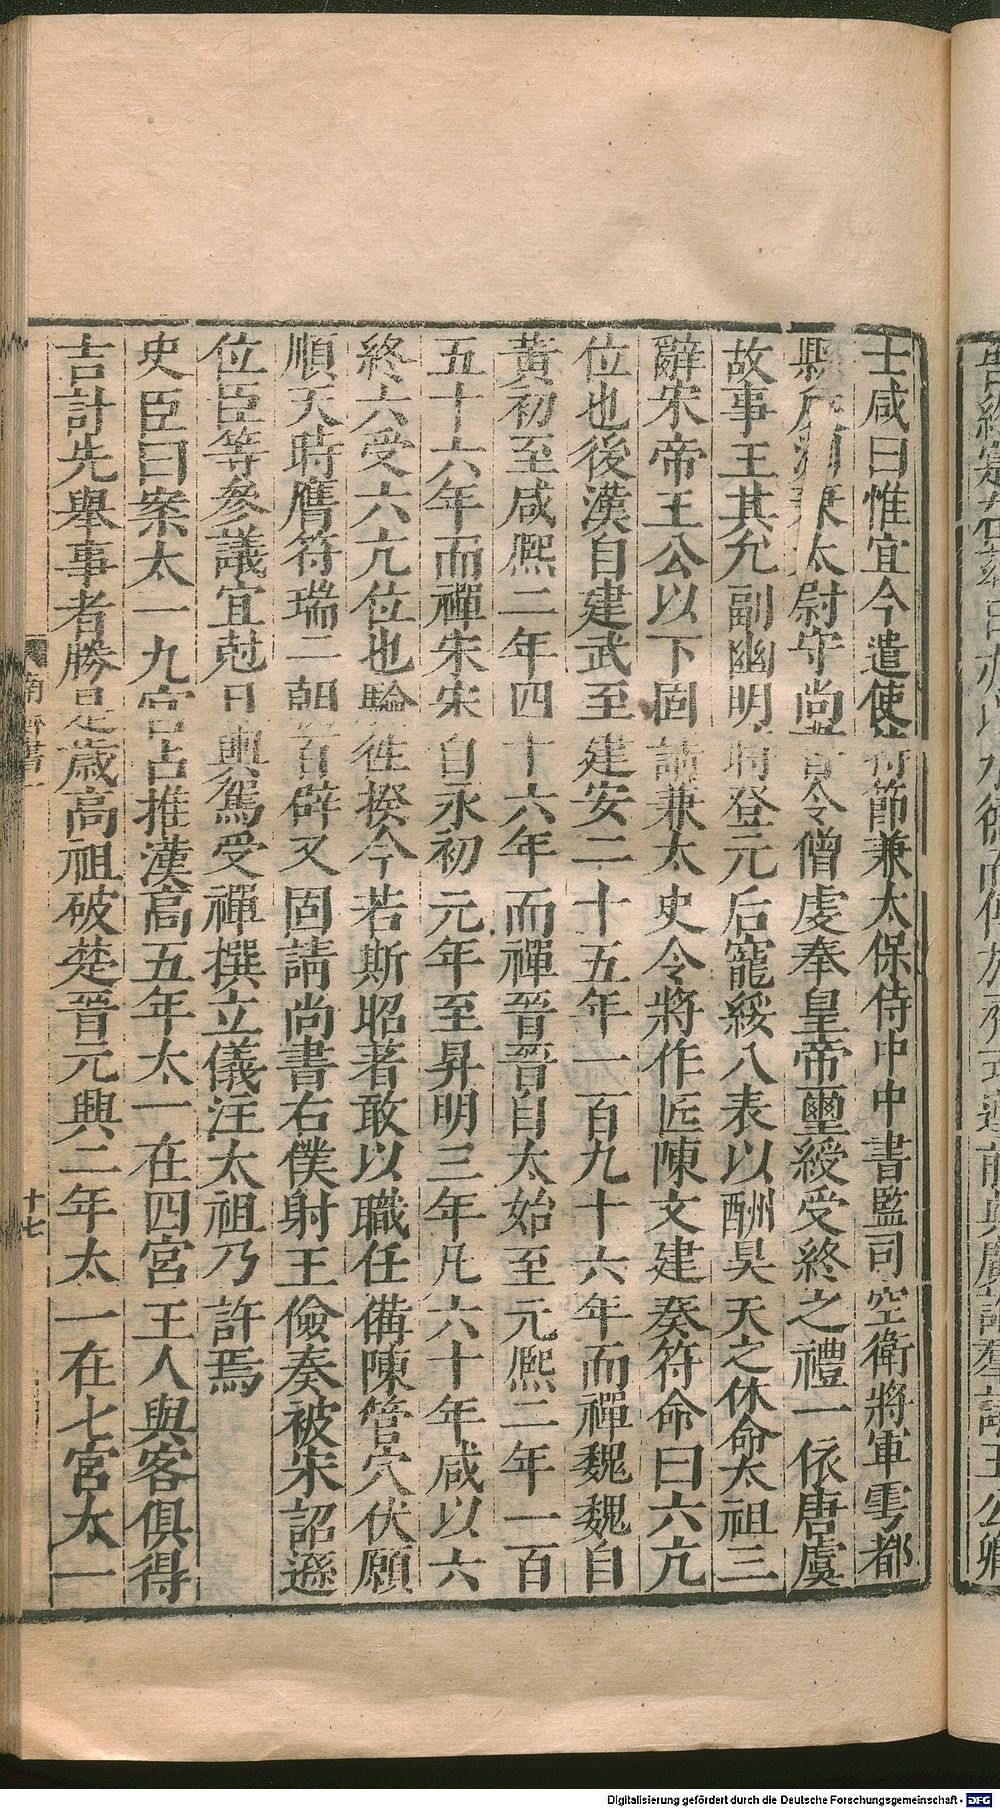 士咸曰惟宜今遣使持節兼太保侍中中書監司空衛將軍雩都
縣侯淵兼太尉守尚書令僧虔奉皇帝璽綬受終之禮一依唐虞
故事王其允副幽明時登元后寵綏八表以酬昊天之休命太祖三
辭宋帝王公以下固請兼太史令將作匠陳文建奏符命曰六亢
位也後漢自建武至建安二十五年一百九十六年而禪魏魏自
黃初至咸熙二年四十六年而禪晉晉自太始至元熙二年一百
五十六年而禪宋宋自永初元年至昇明三年凡六十年咸以六
終六受六亢位也驗徃揆今若斯昭著敢以職任備陳管穴伏願
順天時膺符瑞二朝百辟又固請尚書右僕射王儉奏被宋詔遜
位臣等參議宜尅日輿駕受禪撰立儀注太祖乃許焉
史臣曰案太一九宮占推漢高五年太一在四宮王人與客俱得
吉計先舉事者勝是歲高祖破楚晉元興二年太一在七宮太一
南齊書一
十七
Digitalisierung gefördert durch die Deutsche Forschungsgemeinschaft - DFG